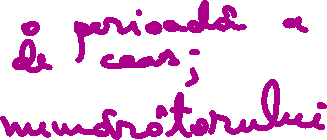 o perioadă a
de ceas;
numărătorului